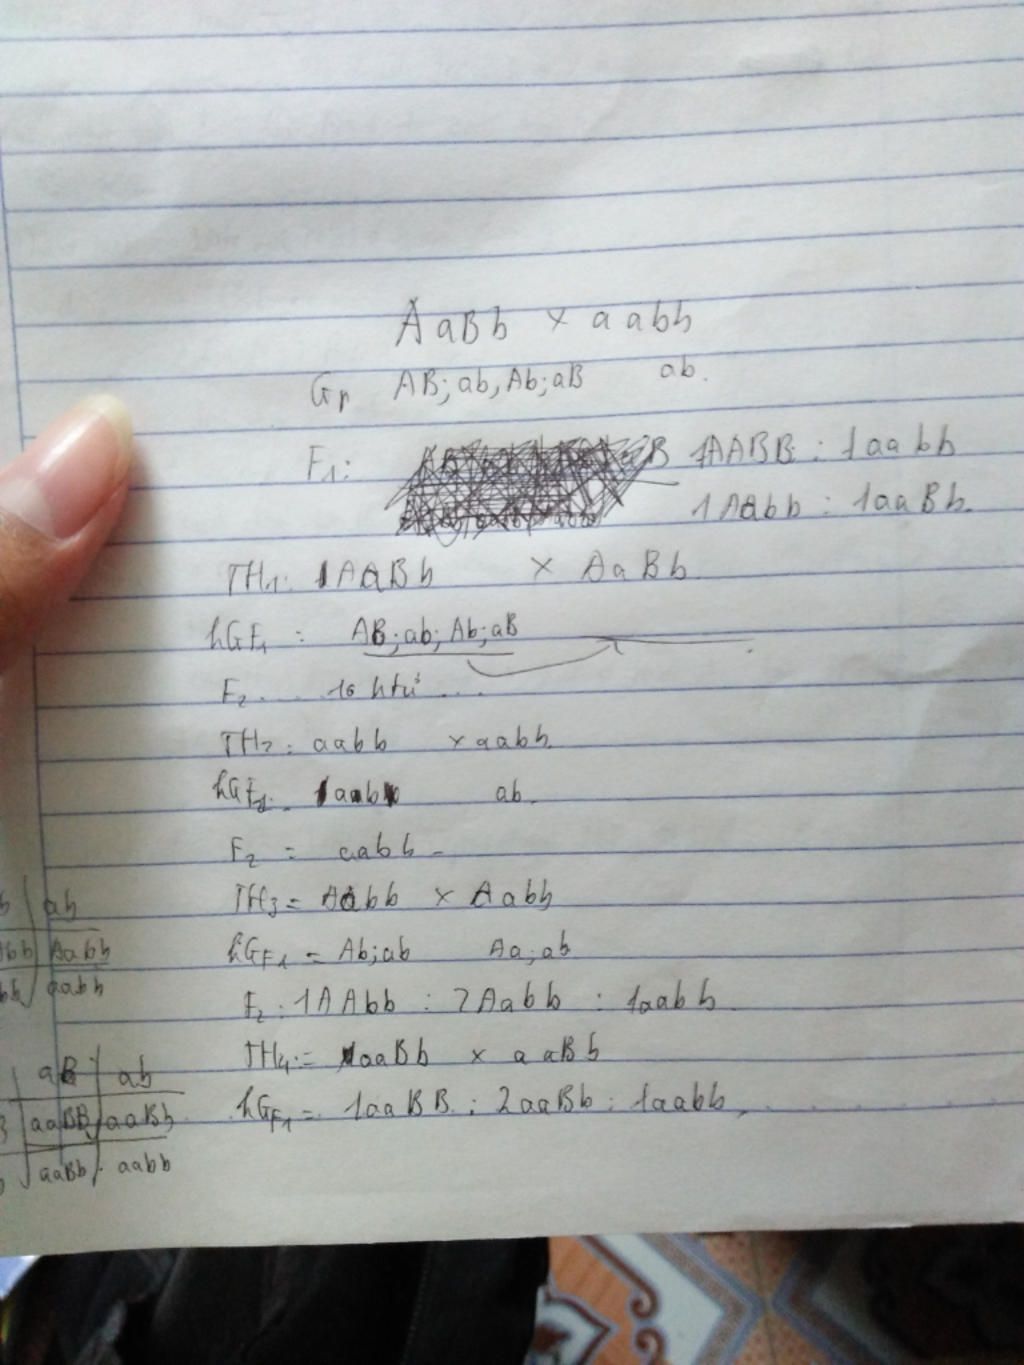 AaBb x aabb
Gp AB; ab, Ab; aB ab.
F1: B 1AABB : 1aabb
1Aabb : 1aaBb.
TH1: 1AABb x AaBb
hGF1 : AB; ab; Ab; aB
F2 .... 16 htử ....
TH2 : aabb x aabb.
ab.
F2 = aabb -
TH3 = Aabb x Aabb
hGF1 = Ab; ab Aa; ab
F2 : 1AAbb : 2Aabb : 1aabb
TH4 := 1aaBb x aaBb
hGF1 = 1aaBB : 2aaBb : 1aabb,
b ab
Abb Aabb
bb aabb
aB ab
B aaBB aaBb
b aaBb aabb